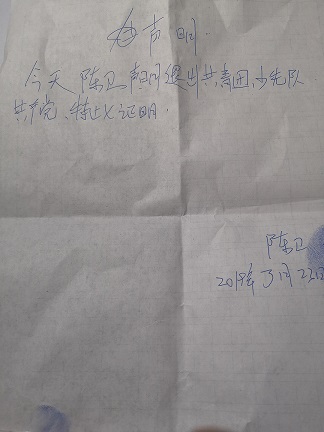 声明.
今天陈卫声明退出共青团、少先队
共产党、特此证明.
陈卫
2019年3月23日